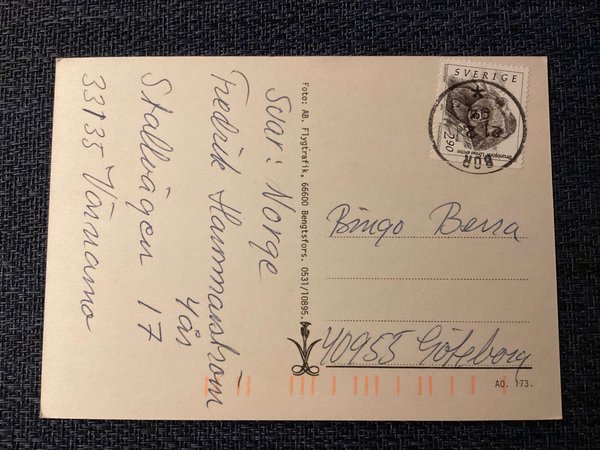 Svar: Norge
Fredrik Hammarström
4 år
Stallvägen 17
33135 Värnamo
Foto: AB. Flygtrafik, 66600 Bengtsfors. 0531/10895.
SVERIGE
290
BOR
Bingo Berra
40955 Göteborg
AO. 173.